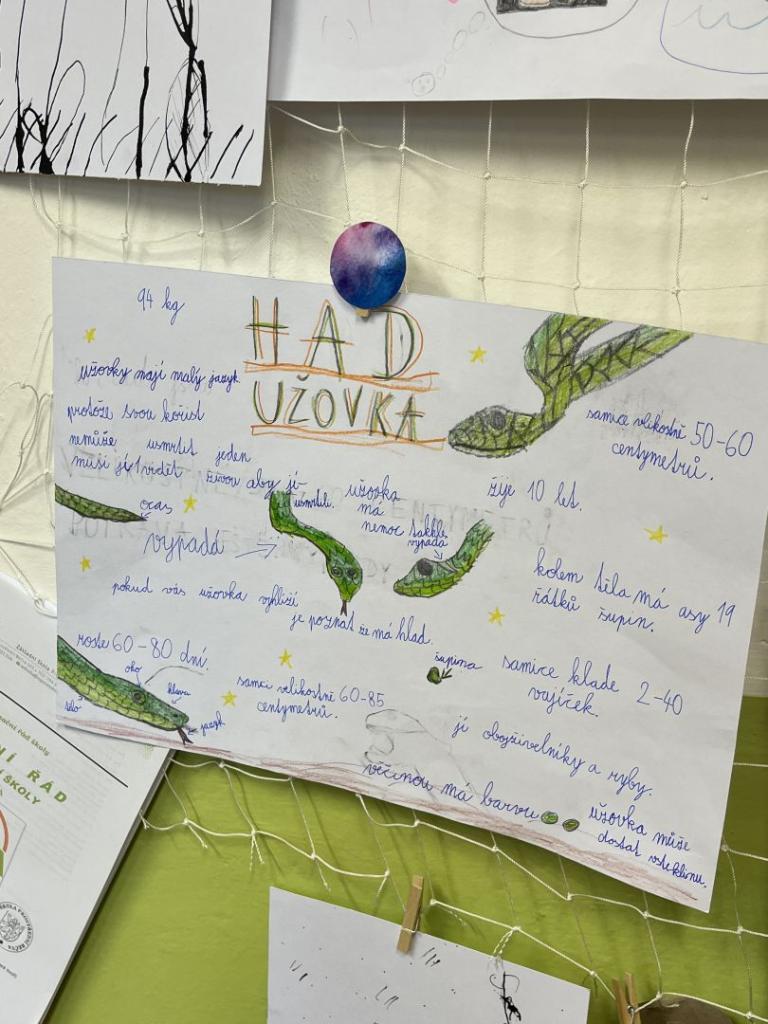 94 kg
HAD
UŽOVKA
užovky mají malý jazyk.
protože svou kořist
nemůže usmrtit jeden
musí jí tvrdět živou aby jí
usmrtili.
samice vlikostně 50-60
centymetrů.
žije 10 let.
užovka
má
nemoc takhle
vypadá
ocas
vypadá
kolem těla má asy 19
řátků šupin.
pokud vás užovka vyhlíží
je poznat že má hlad.
roste 60-80 dní.
oko
hlava
tělo
jazyk
samci vlikostně 60-85
centymetrů.
šupina
samice klade 2-40
vajíček.
jí obojživelníky a ryby.
věčinou má barvu
užovka může
dostat vsteklinu.
ŘÁD
ŠKOLY